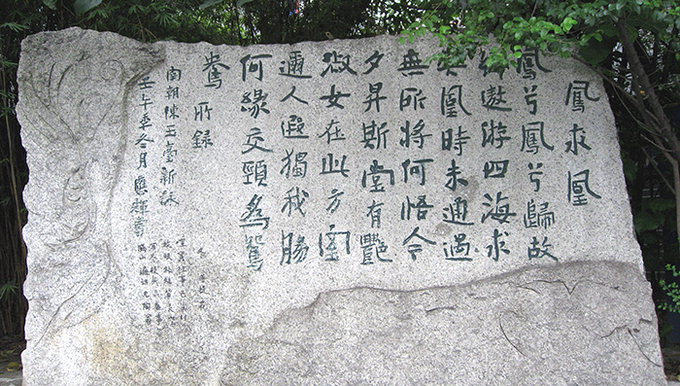 鳳求凰
鳳兮鳳兮歸故
鄉遨游四海求
其凰時未通遇
無所將何悟今
夕昇斯堂有艷
淑女在此方室
邇人遐獨我腸
何緣交頸爲鴛
鴦 所錄
南朝陳玉臺新詠
壬午季冬月